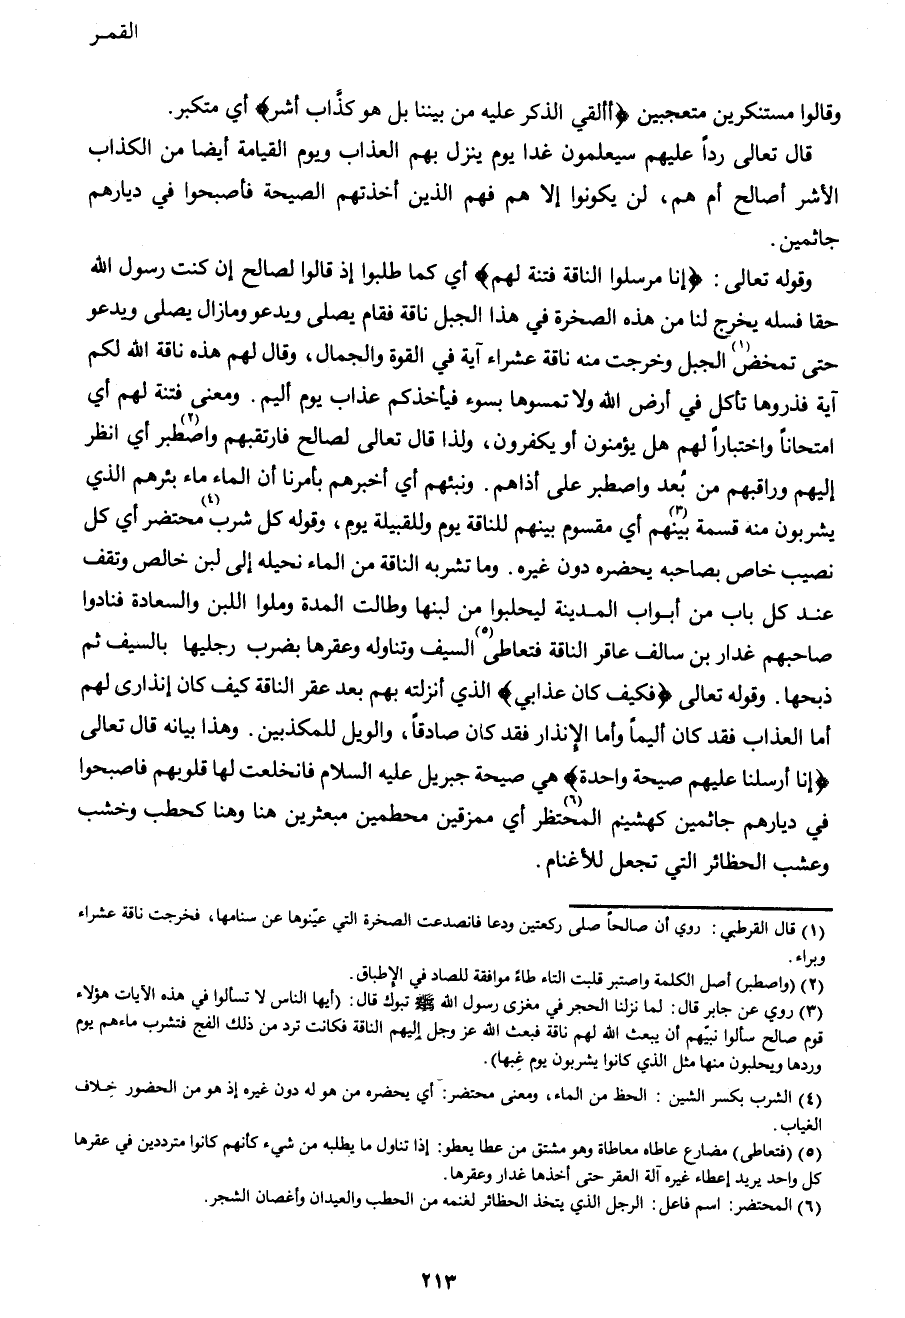 القمـر
وقالوا مستنكرين متعجبين ﴿أألقي الذكر عليه من بيننا بل هو كذَّاب أشر﴾ أي متكبر.
قال تعالى رداً عليهم سيعلمون غدا يوم ينزل بهم العذاب ويوم القيامة أيضا من الكذاب
الأشر أصالح أم هم، لن يكونوا إلا هم فهم الذين أخذتهم الصيحة فأصبحوا في ديارهم
جاثمين.
وقوله تعالى: ﴿إنا مرسلوا الناقة فتنة لهم﴾ أي كما طلبوا إذ قالوا لصالح إن كنت رسول الله
حقا فسله يخرج لنا من هذه الصخرة في هذا الجبل ناقة فقام يصلى ويدعو ومازال يصلى ويدعو
حتى تمخض(١) الجبل وخرجت منه ناقة عشراء آية في القوة والجمال، وقال لهم هذه ناقة الله لكم
آية فذروها تأكل في أرض الله ولا تمسوها بسوء فيأخذكم عذاب يوم أليم. ومعنى فتنة لهم أي
امتحاناً واختباراً لهم هل يؤمنون أو يكفرون، ولذا قال تعالى لصالح فارتقبهم واصطبر(٢) أي انظر
إليهم وراقبهم من بُعد واصطبر على أذاهم. ونبئهم أي أخبرهم بأمرنا أن الماء ماء بئرهم الذي
يشربون منه قسمة بينهم(٣) أي مقسوم بينهم للناقة يوم وللقبيلة يوم، وقوله كل شرب(٤) محتضر أي كل
نصيب خاص بصاحبه يحضره دون غيره. وما تشربه الناقة من الماء نحيله إلى لبن خالص وتقف
عند كل باب من أبواب المدينة ليحلبوا من لبنها وطالت المدة وملوا اللبن والسعادة فنادوا
صاحبهم غدار بن سالف عاقر الناقة فتعاطى(٥) السيف وتناوله وعقرها بضرب رجليها بالسيف ثم
ذبحها. وقوله تعالى ﴿فكيف كان عذابي﴾ الذي أنزلته بهم بعد عقر الناقة كيف كان إنذارى لهم
أما العذاب فقد كان أليماً وأما الإنذار فقد كان صادقاً، والويل للمكذبين. وهذا بيانه قال تعالى
﴿إنا أرسلنا عليهم صيحة واحدة﴾ هي صيحة جبريل عليه السلام فانخلعت لها قلوبهم فاصبحوا
في ديارهم جاثمين كهشيم المحتظر(٦) أي ممزقين محطمين مبعثرين هنا وهنا كحطب وخشب
وعشب الحظائر التي تجعل للأغنام.
(١) قال القرطبي: روي أن صالحاً صلى ركعتين ودعا فانصدعت الصخرة التي عيّنوها عن سنامها، فخرجت ناقة عشراء
وبراء.
(٢) (واصطبر) أصل الكلمة واصتبر قلبت التاء طاءً موافقة للصاد في الإطباق.
(٣) روي عن جابر قال: لما نزلنا الحجر في مغزى رسول الله ﷺ تبوك قال: (أيها الناس لا تسألوا في هذه الآيات هؤلاء
قوم صالح سألوا نبيّهم أن يبعث الله لهم ناقة فبعث الله عز وجل إليهم الناقة فكانت ترد من ذلك الفج فتشرب ماءهم يوم
وردها ويحلبون منها مثل الذي كانوا يشربون يوم غبها).
(٤) الشرب بكسر الشين: الحظ من الماء، ومعنى محتضر: أي يحضره من هو له دون غيره إذ هو من الحضور خلاف
الغياب.
(٥) (فتعاطى) مضارع عاطاه معاطاة وهو مشتق من عطا يعطو: إذا تناول ما يطلبه من شيء كأنهم كانوا مترددين في عقرها
كل واحد يريد إعطاء غيره آلة العقر حتى أخذها غدار وعقرها.
(٦) المحتضر: اسم فاعل: الرجل الذي يتخذ الحظائر لغنمه من الحطب والعيدان وأغصان الشجر.
٢١٣